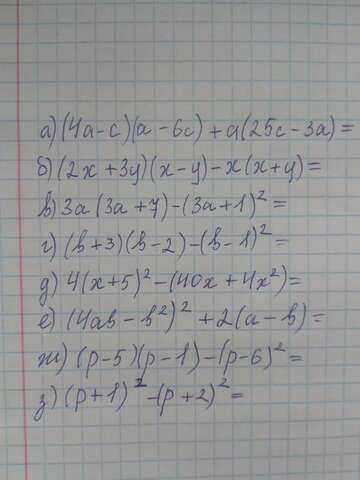 а) (4a-c)(a-6c)+a(25c-3a)=
б) (2x+3y)(x-y)-x(x+y)=
в) 3a(3a+7)-(3a+1)²=
г) (b+3)(b-2)-(b-1)²=
д) 4(x+5)²-(40x+4x²)=
е) (4ab-b²)²+2(a-b)=
ж) (p-5)(p-1)-(p-6)²=
з) (p+1)²-(p+2)²=